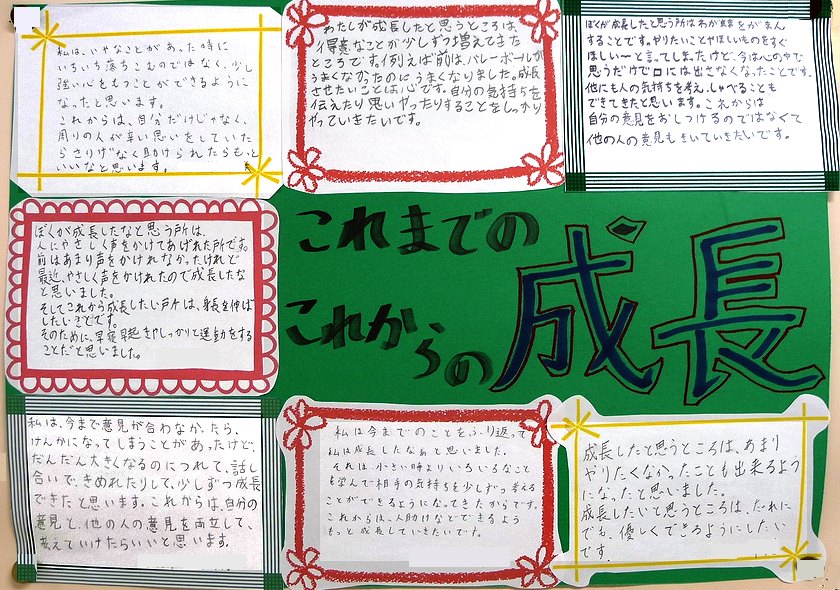 私は、いやなことがあった時に
いちいち落ちこむのではなく、少し
強い心をもつことができるように
なったと思います。
これからは、自分だけじゃなく、
周りの人が辛い思いをしていた
らさりげなく助けられたらもっと
いいなと思います。
わたしが成長したと思うところは、
得意なことが少しずつ増えてきた
ところです。例えば前は、バレーボールが
うまくなかったのにうまくなりました。成長
させたいことは心です。自分の気持ちを
伝えたり思いやったりすることをしっかり
やっていきたいです。
ぼくが成長したと思う所はわがままをがまん
することです。やりたいことやほしいものをすぐ
ほしい〜と言ってしまったけど、今は心の中で
思うだけで口には出さなくなったことです。
他にも人の気持ちを考え、しゃべることも
できてきたと思います。これからは
自分の意見をおしつけるのではなくて
他の人の意見もきいていきたいです。
ぼくが成長したなと思う所は、
人にやさしく声をかけてあげれた所です。
前はあまり声をかけれなかったけれど
最近、やさしく声をかけれたので成長したな
と思いました。
そしてこれから成長したい所は、身長を伸ば
したいことです。
そのために、早寝早起きやしっかりと運動をする
ことだと思いました。
これまでの
これからの
成長
私は、今まで意見が合わなかったら、
けんかになってしまうことがあったけど、
だんだん大きくなるのにつれて、話し
合いで、きめれたりして、少しずつ成長
できたと思います。これからは、自分の
意見と、他の人の意見を両立して、
考えていけたらいいと思います。
私は今までのことをふり返って
私は成長したなぁと思いました。
それは、小さい時よりいろいろなこと
を学んで相手の気持ちを少しずつ考える
ことができるようになってきたからです。
これからは、人助けなどできるよう
もっと成長していきたいです。
成長したと思うところは、あまり
やりたくなかったことも出来るよう
になったと思いました。
成長したいと思うところは、だれに
でも、優しくできるようにしたい
です。